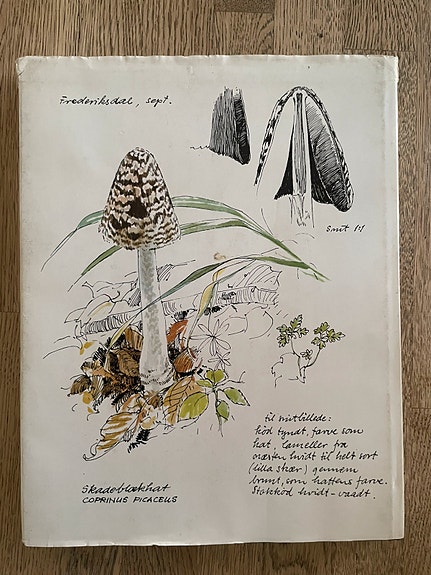 Frederiksdal, sept.
Snit 1/1
til snitbillede:
kød tyndt, farve som
hat, lameller fra
næsten hvidt til helt sort
(lilla skær) gennem
brunt, som hattens farve.
Stokkød hvidt-vandt
Skadeblækhat
COPRINUS PICACEUS